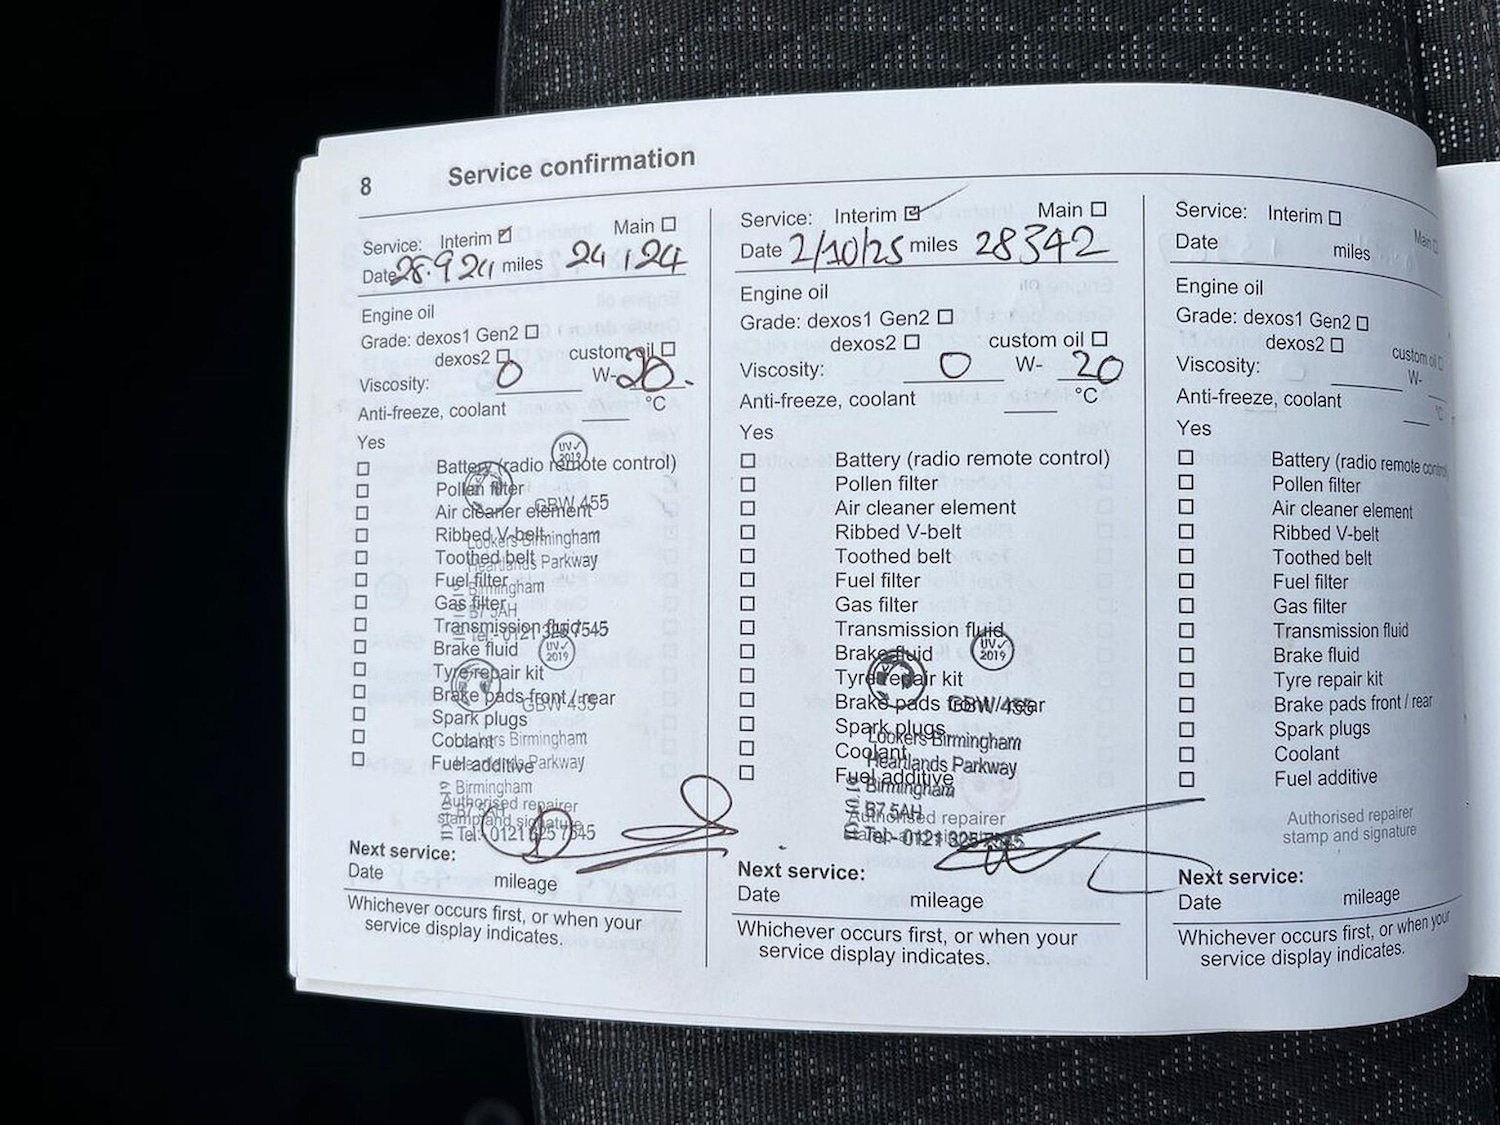 8 Service confirmation
Service: Interim Main
Date 28.9 24 miles 24124
Engine oil
Grade: dexos1 Gen2
dexos2 custom oil
Viscosity: 0 W- 20.
Anti-freeze, coolant °C
Yes
UV✓
2019
Battery (radio remote control)
Pollen filter
GBW 455
Air cleaner element
Ribbed V-belt
Lookers Birmingham
Toothed belt
Heartlands Parkway
Fuel filter
Birmingham
Gas filter
B7 5AH
Transmission fluid
Tel:- 0121 325 7545
Brake fluid
UV✓
2019
Tyre repair kit
Brake pads front / rear
GBW 455
Spark plugs
Coolant
Lookers Birmingham
Fuel additive
Heartlands Parkway
Birmingham
Authorised repairer
B7 5AH
stamp and signature
Tel:- 0121 325 7545
Next service:
Date mileage
Whichever occurs first, or when your
service display indicates.
Service: Interim Main
Date 2/10/25 miles 28342
Engine oil
Grade: dexos1 Gen2
dexos2 custom oil
Viscosity: 0 W- 20
Anti-freeze, coolant °C
Yes
Battery (radio remote control)
Pollen filter
Air cleaner element
Ribbed V-belt
Toothed belt
Fuel filter
Gas filter
Transmission fluid
UV✓
2019
Brake fluid
Tyre repair kit
Brake pads front / rear
GBW 455
Spark plugs
Lookers Birmingham
Coolant
Heartlands Parkway
Fuel additive
Birmingham
B7 5AH
Authorised repairer
stamp and signature
Tel:- 0121 325 7545
Next service:
Date mileage
Whichever occurs first, or when your
service display indicates.
Service: Interim Main
Date miles
Engine oil
Grade: dexos1 Gen2
dexos2 custom oil
Viscosity: W-
Anti-freeze, coolant °C
Yes
Battery (radio remote control)
Pollen filter
Air cleaner element
Ribbed V-belt
Toothed belt
Fuel filter
Gas filter
Transmission fluid
Brake fluid
Tyre repair kit
Brake pads front / rear
Spark plugs
Coolant
Fuel additive
Authorised repairer
stamp and signature
Next service:
Date mileage
Whichever occurs first, or when your
service display indicates.